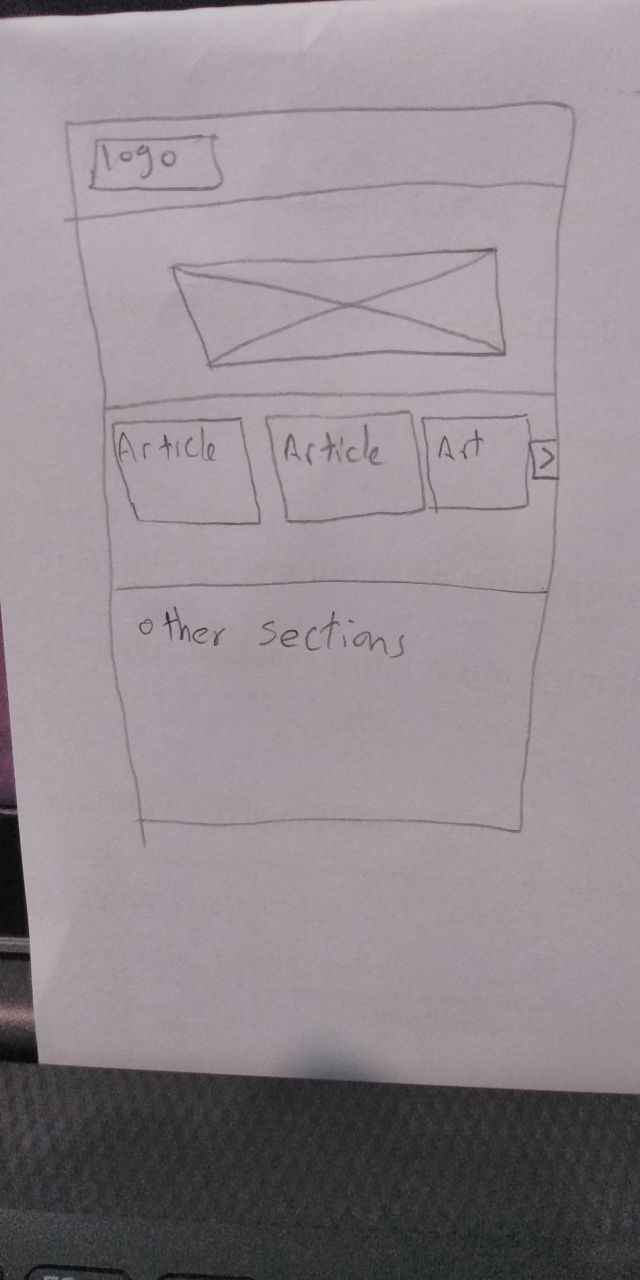 logo
Article Article Art >
other sections